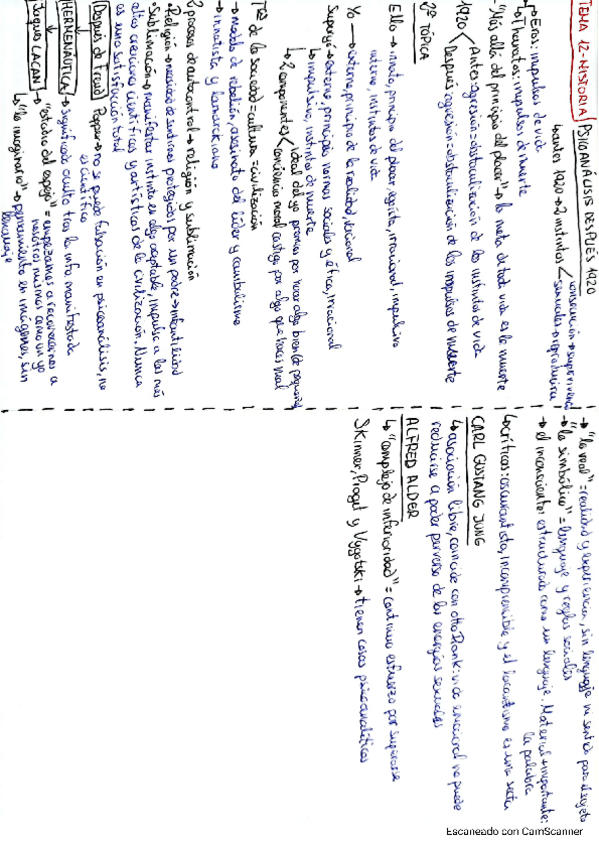 TEMA 12-HISTORIA
PSICOANÁLISIS DESPUÉS 1920
↳ antes 1920 → 2 instintos < conservación → supervivencia
sexuales → reproductiva
↳ Eros: impulsos de vida
↳ Thanatos: impulsos de muerte
"Más allá del principio del placer" → la meta de toda vida es la muerte
1920 < Antes: agresión = obstaculización de los instintos de vida
Después: agresión = obstaculización de los impulsos de muerte
2ª TÓPICA
Ello → innato, principio del placer, egoísta, irracional, impulsivo
interno, instintos de vida
Yo → externo, principio de la realidad, racional
Superyó → externo, principios normas sociales y ética, irracional
↳ impulsivo, instintos de muerte
↳ 2 componentes < ideal del yo premias por hacer algo bien (de pequeño)
conciencia moral castiga por algo que haces mal
Tª de la sociedad = cultura = civilización
→ modelo de rebelión, asesinato del líder y canibalismo
↳ innatista y lamarckiano
2 procesos de autocontrol → religión y sublimación
→ Religión → necesidad de sentirnos protegidos por un padre → infantilidad
→ Sublimación → manifestar instinto en algo adaptable, impulsa a las más
altas creaciones científicas y artísticas de la civilización. Nunca
es una satisfacción total
Después de Freud Popper → no se puede falsación en psicoanálisis, no
es científica
HERMENÉUTICA → significado oculto tras la info manifestada
Jaques LACAN → "estadio del espejo" = empezamos a reconocernos a
nosotros mismos como un yo
↳ "lo imaginario" → pensamiento en imágenes, sin
lenguaje
→ "lo real" = realidad y experiencia, sin lenguaje ni sentido para el sujeto
→ "lo simbólico" = lenguaje y reglas sociales
→ el inconsciente: estructurado como un lenguaje. Material + importante:
la palabra
↳ críticas: oscurantista, incomprensible y el lacanismo es una secta
CARL GUSTANG JUNG
↳ asociación libre, coincide con Otto Rank: vida emocional no puede
reducirse a poder perverso de las energías sexuales
ALFRED ALDER
↳ "complejo de inferioridad" = continuo esfuerzo por superarse
Skinner, Piaget y Vygotski → tienen cosas psicoanalíticas
Escaneado con CamScanner